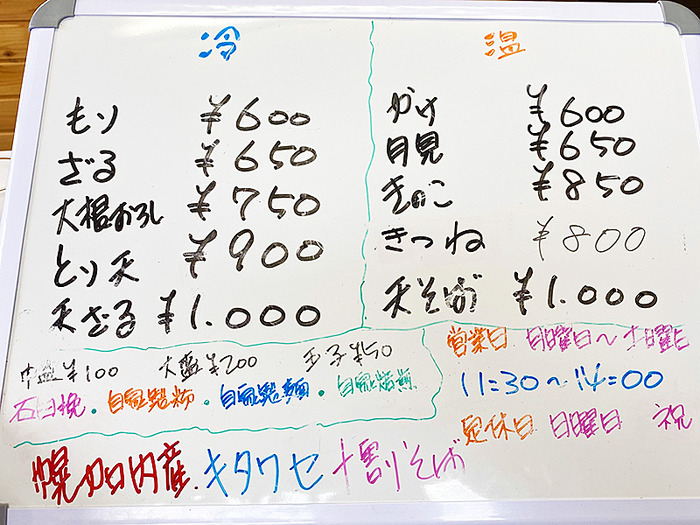 冷
もり ¥600
ざる ¥650
大根おろし ¥750
とり天 ¥900
天ざる ¥1.000
温
かけ ¥600
月見 ¥650
きのこ ¥850
きつね ¥800
天そば ¥1.000
中盛¥100 大盛¥200 玉子¥50
石臼挽・自家製粉・自家製麺・自家焙煎
営業日 月曜日〜土曜日
11:30〜14:00
定休日 日曜日 祝
幌加内産.キタワセ十割そば